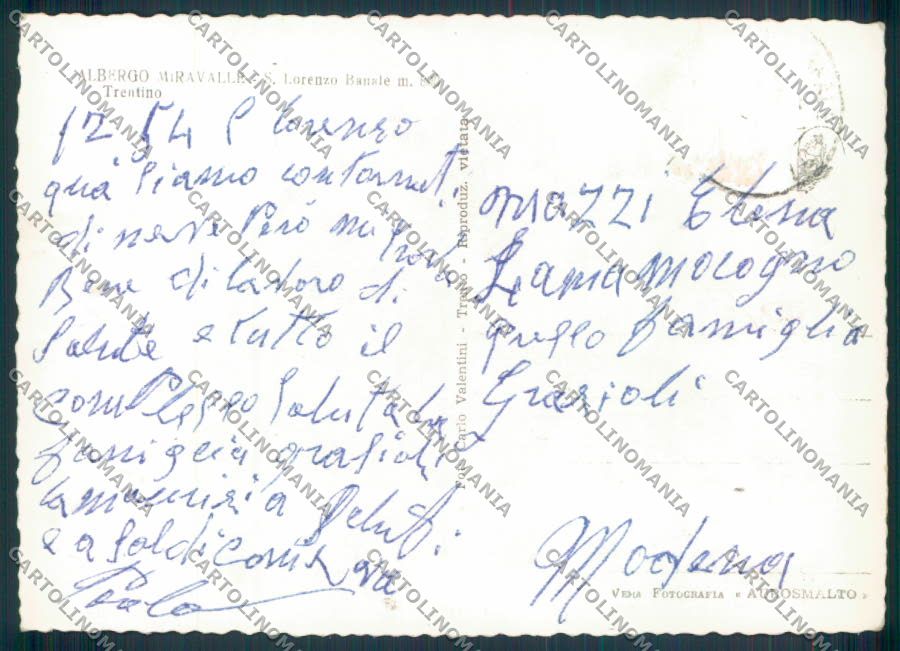 ALBERGO MIRAVALLE - S. Lorenzo Banale m.
Trentino
17 54 S Lorenzo
qua siamo contornati
di neve Però mi trova
Bene di lavoro di
salute e tutto il
comPlesso Saluta la
famiglia grazioli
e a
Paolo
Fot. Carlo Valentini - Trento - Riproduz. vietata
mazzi Elena
Lama mocogno
presso famiglia
Grazioli
Modena
VERA FOTOGRAFIA « AUROSMALTO »
CARTOLINOMANIA